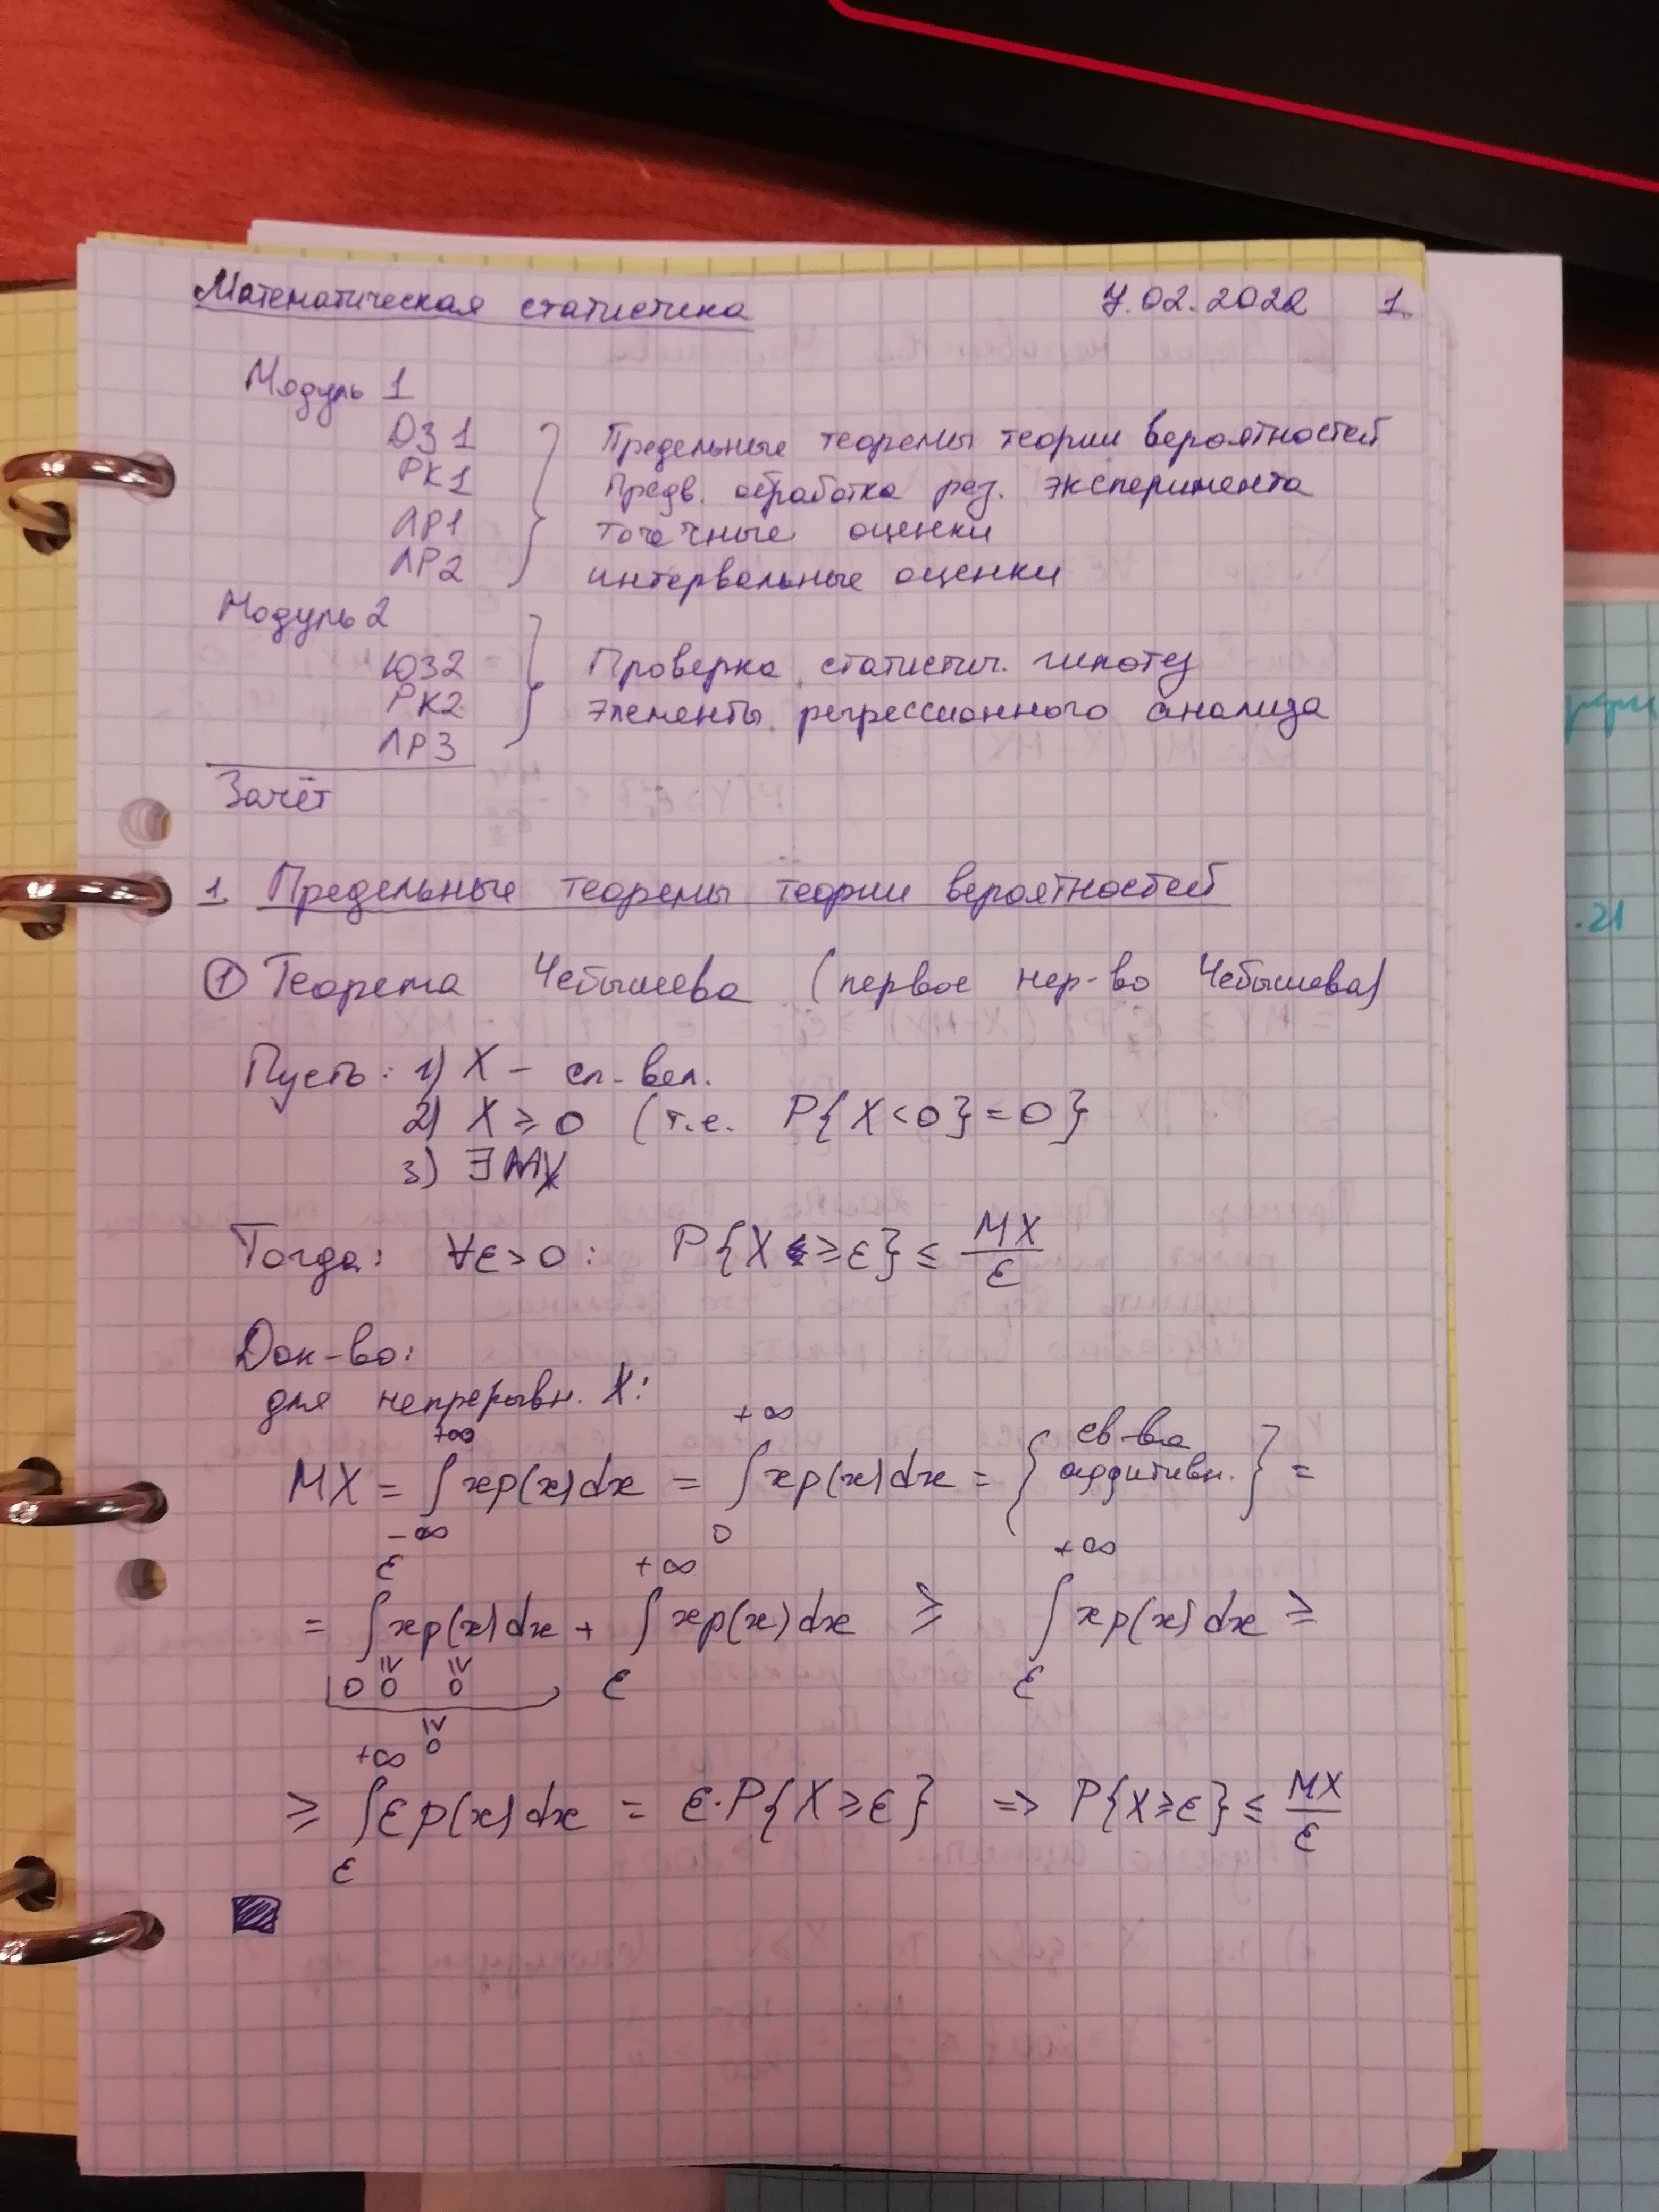 Математическая статистика 7.02.2022 1.
Модуль 1
ДЗ 1 Предельные теоремы теории вероятностей
РК1 Предв. обработка рез. эксперимента
ЛР1 точечные оценки
ЛР2 интервальные оценки
Модуль 2
ДЗ2 Проверка статистич. гипотез
РК2 Элементы регрессионного анализа
ЛР3
Зачёт
1. Предельные теоремы теории вероятностей
① Теорема Чебышева (первое нер-во Чебышева)
Пусть: 1) X – сл. вел.
2) X ≥ 0 (т.е. P{X<0}=0}
3) ∃MX
Тогда: ∀ε>0: P{X ≥ε} ≤ MX/ε
Док-во:
для непрерывн. X:
MX = ∫_{-∞}^{+∞} xp(x)dx = ∫_0^{+∞} xp(x)dx = { св-ва аддитивн. } =
= ∫_0^ε xp(x)dx + ∫_ε^{+∞} xp(x)dx ≥ ∫_ε^{+∞} xp(x)dx ≥
≥0 ≥0
≥0
≥ ∫_ε^{+∞} εp(x)dx = ε·P{X≥ε} ⇒ P{X≥ε} ≤ MX/ε